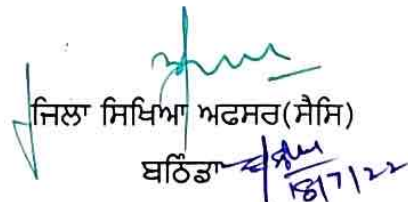 ਜਿਲਾ ਸਿਖਿਆ ਅਫਸਰ(ਸੈਸਿ)
ਬਠਿੰਡਾ
18/7/22